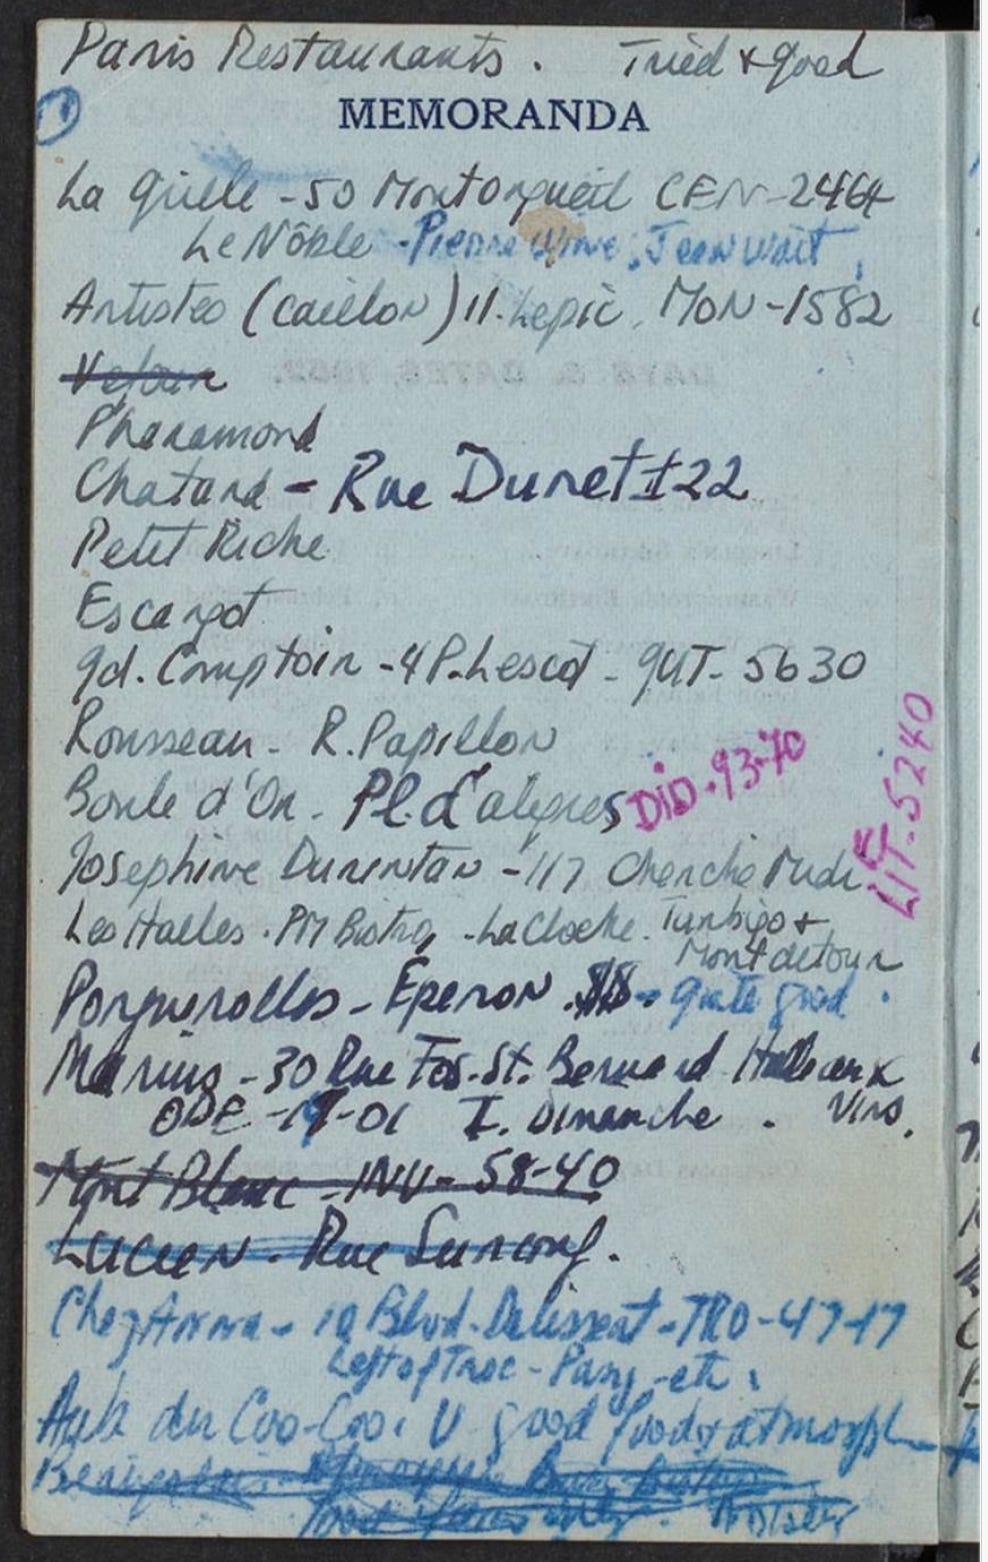 Paris Restaurants. Tried + good
MEMORANDA
La Grille - 50 Montorgueil CEN-2464
Le Nôble - Pierre Wine, Jean Wait
Artistes (Caillon) 11. Lepic. MON-1582
Vefour
Pharamond
Chatard - Rue Duret 122
Petit Riche
Escargot
gd. Comptoir - 4 P. Lescot - GUT. 5630
Rousseau - R. Papillon
Boule d'Or. Pl. d'aligres DID. 93-70
Josephine Durintan - 117 Cherche Midi
LIT-5240
Les Halles. PM Bistro, - La Cloche. Turbigo +
Montdetour
Porquerolles - Eperon. $$ - quite good.
Marius - 30 Rue Fos. St. Bernard Halle aux
ODE-19-01 I. Dimanche. Vins.
Mont Blanc - INV - 58-40
Lucien. Rue Surcouf.
Chez Anna - 19 Blvd. Delessert - TRO-47-17
Left of Troc - Pasy - etc.
Aub du Coo-Coo. V good food + atmosph